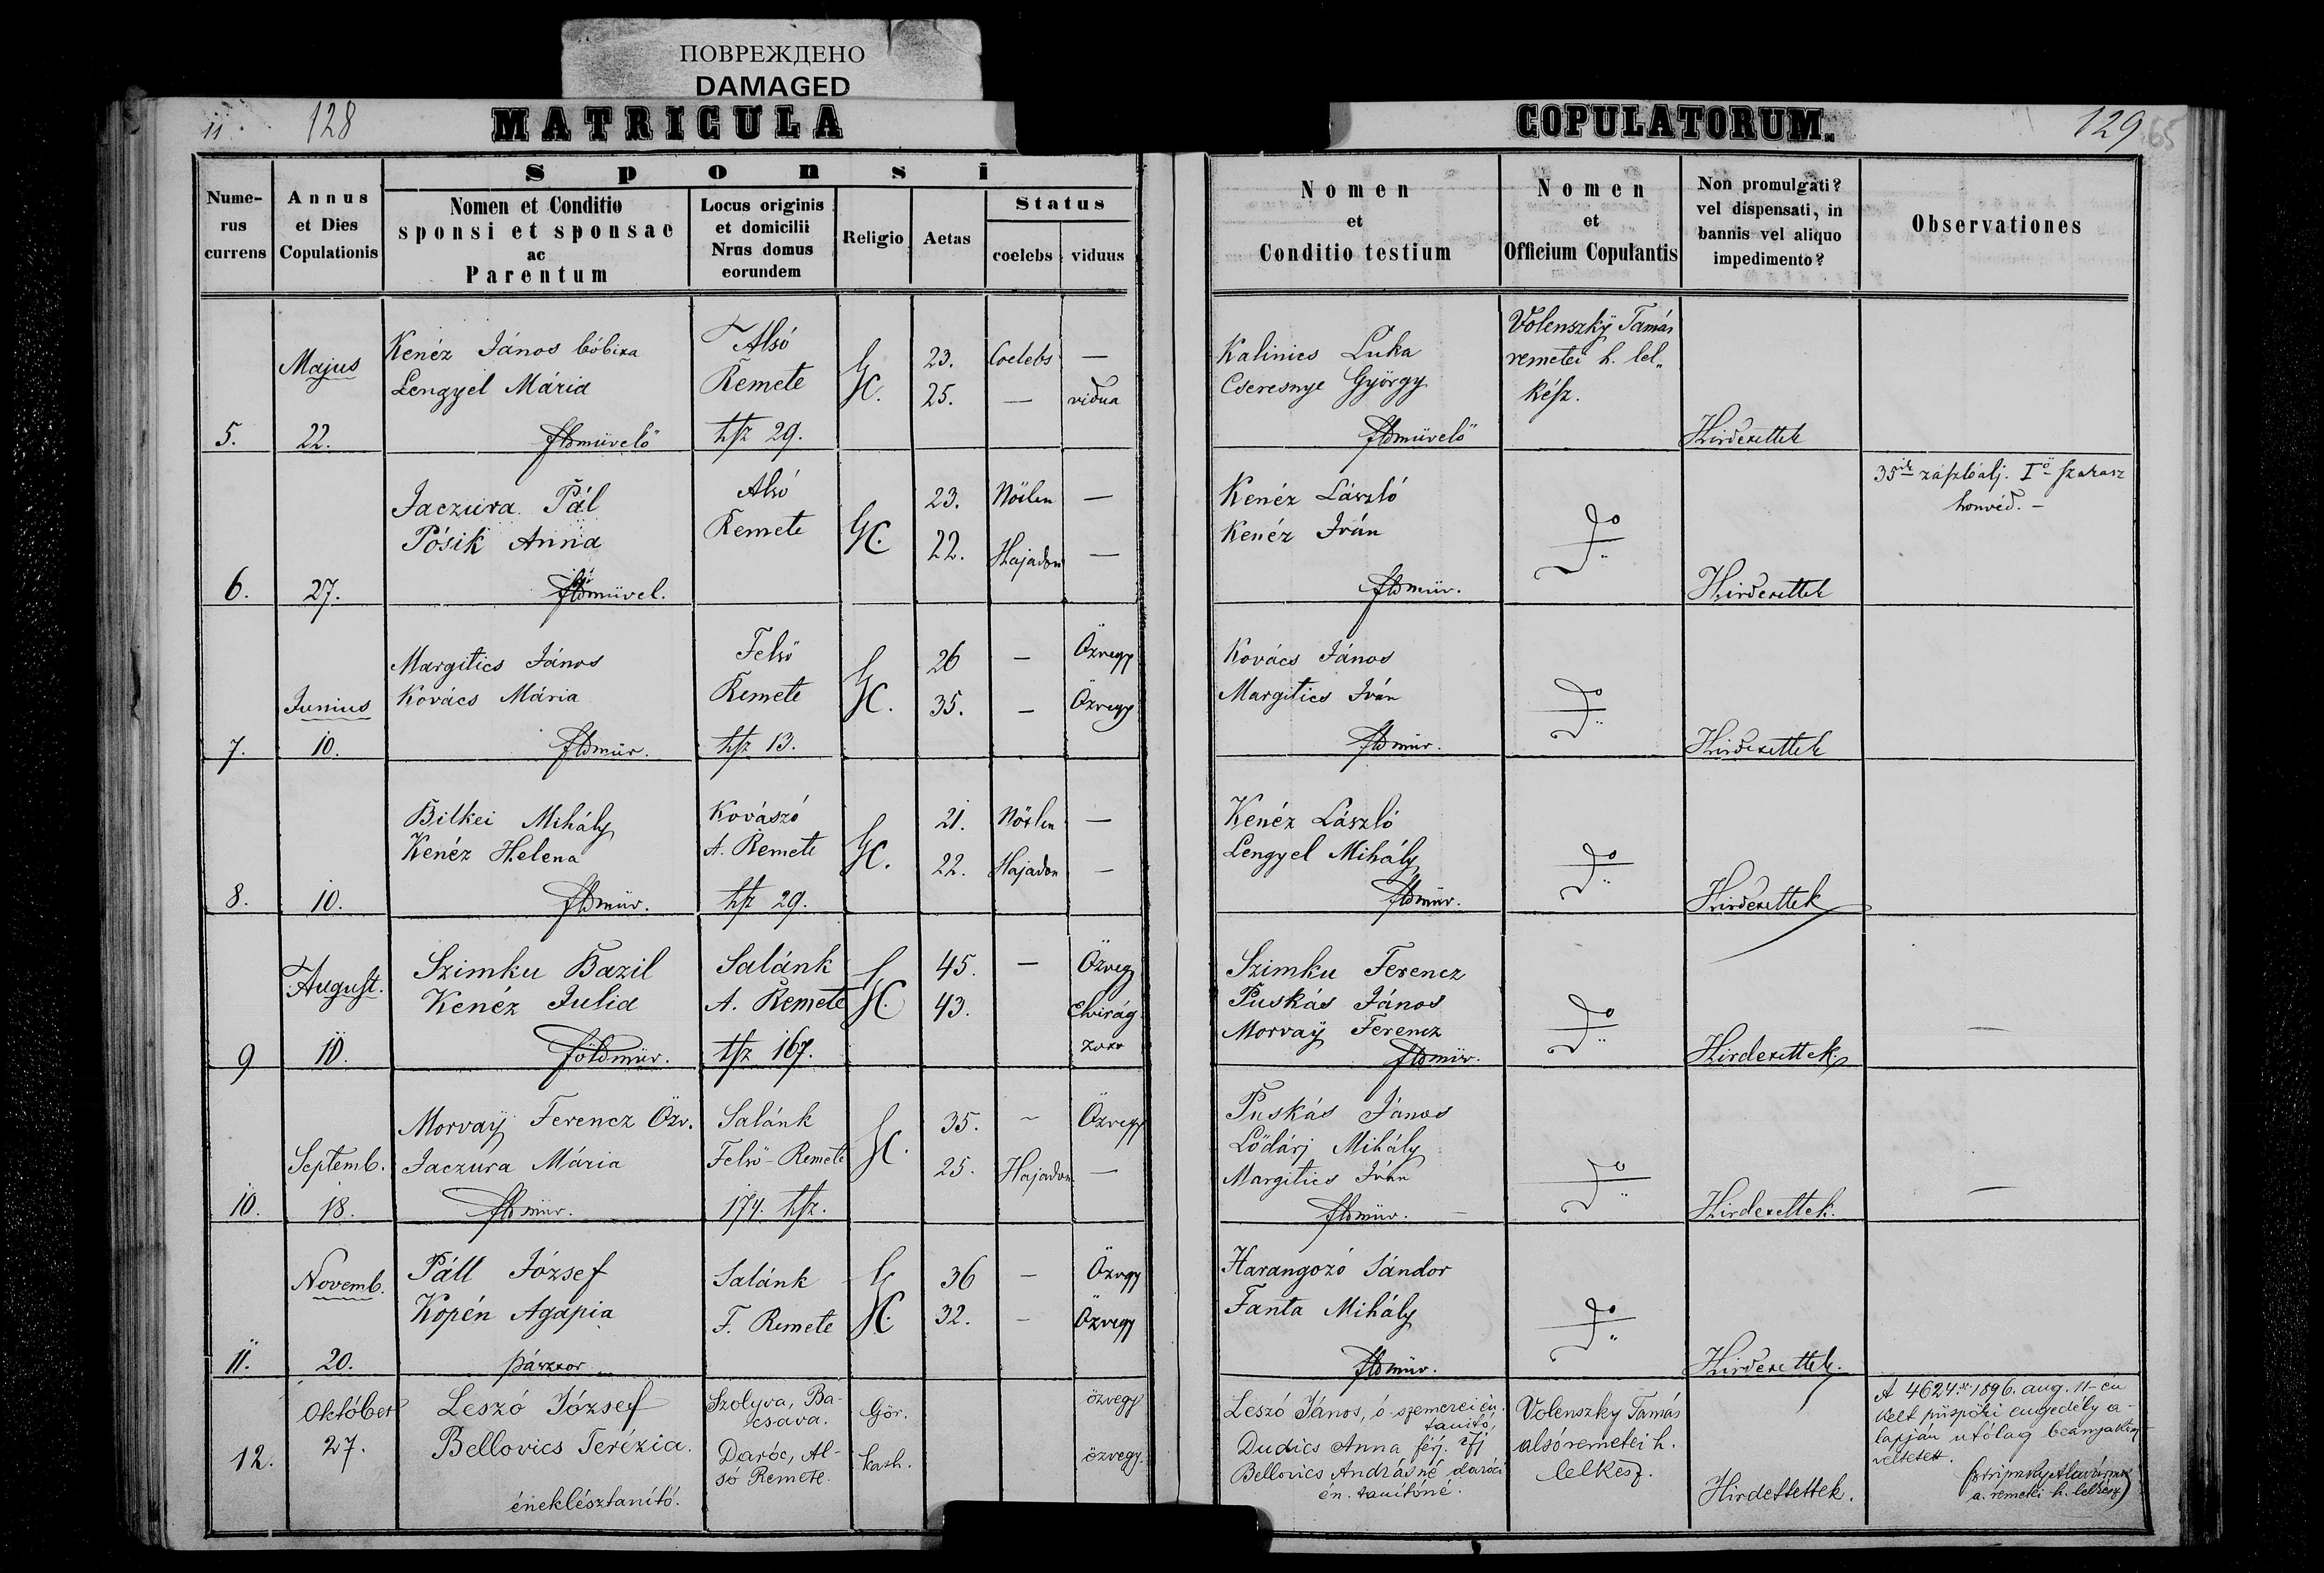 ПОВРЕЖДЕНО
DAMAGED
11 128 MATRICULA COPULATORUM. 129 65
Numerus currens
Annus et Dies Copulationis
Sponsi
Nomen et Conditio
sponsi et sponsae
ac
Parentum
Locus originis
et domicilii
Nrus domus
eorundem
Religio
Aetas
Status
coelebs
viduus
Nomen
et
Conditio testium
Nomen
et
Officium Copulantis
Non promulgati?
vel dispensati, in
bannis vel aliquo
impedimento?
Observationes
5.
Majus
22.
Kenéz János bóbixa
Lengyel Mária
földmüvelő
Alsó
Remete
hsz 29.
G C.
23. Coelebs —
25. — vidua
Kalinics Luka
Cseresnye György
földmüvelő
Volenszkÿ Tamás
remetei h. lel„
kész.
Hirdezettek
6.
27.
Jaczura Pál
Pósik Anna
földmüvel.
Alsó
Remete
GC.
23. Nőtlen —
22. Hajadon —
Kenéz László
Kenéz Iván
földmüv.
Do
Hirdezettek
35ik zászlóalj. Iő szakasz
honvéd. —
7.
Junius
10.
Margitics János
Kovács Mária
földmüv.
Felső
Remete
hsz 13.
G C.
26 — Özvegy
35. — Özvegy
Kovács János
Margitics Iván
földmüv.
Do
Hirdezettek
8.
10.
Bilkei Mihály
Kenéz Helena
földmüv.
Kovászó
A. Remete
hsz 29.
GC.
21. Nőtlen —
22. Hajadon —
Kenéz László
Lengyel Mihály
földmüv.
Do
Hirdezettek
9
August.
10.
Szimku Bazil
Kenéz Julia
földmüv.
Salánk
A. Remete
hsz 167.
G C.
45. — Özvegy
43. Elvirág
Szimku Ferencz
Puskás János
Morvaÿ Ferencz
földmüv.
Do
Hirdezettek
—
10.
Septemb.
18.
Morvaÿ Ferencz Özv.
Jaczura Mária
földmüv.
Salánk
Felső-Remete
174. hsz.
GC.
35. — Özvegy
25. Hajadon —
Puskás János
Lődárj Mihály
Margitics Iván
földmüv.
Do
Hirdezettek.
—
11.
Novemb.
20.
Páll József
Kopén Agapia
pásztor
Salánk
F. Remete
G C.
36 — Özvegy
32. — Özvegy
Harangozó Sándor
Fanta Mihály
földmüv.
Do
Hirdezettek.
12.
Október
27.
Leszó József
Bellovics Terézia.
éneklésztanító.
Szolyva, Ba-
csava.
Daróc, Al-
só Remete.
Gör.
kath.
özvegy
özvegy.
Leszó János, ó-szemerei én.
tanító,
Dudics Anna férj. ifj
Bellovics Andrásné daróci
én. tanítóné.
Volenszky Tamás
alsóremetei h.
lelkész.
Hirdettettek.
A 4624. sz. 1896. aug. 11-én
kelt püspöki engedély a-
lapján utólag beanyaköny-
veltetett.
a. remetei h. lelkész